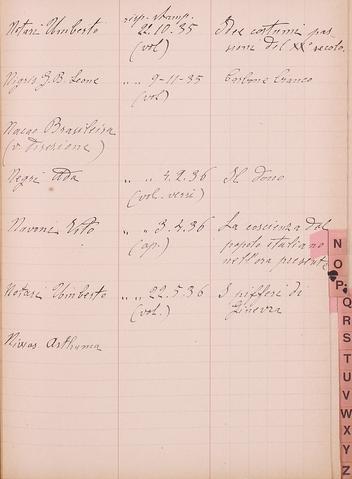 risp. stamp.
Notari Umberto 22.10.35 Dez costumi pas
(vol) sioni del XX secolo.
Nigris G.B. Leone " " 9-11-35 Carbone bianco
(vol)
Nacao Brasileira
(v. Direzione)
Negri Ada " " 4.2.36 Il dono
(vol. versi)
Navoni Vito " " 3.4.36 La coscienza del
(op.) popolo italiano
nell'ora presente
Notari Umberto " " 22.5.36 I pifferi di
(vol.) Ginevra
Nissos Arthuma
N
O
P
Q
R
S
T
U
V
W
X
Y
Z